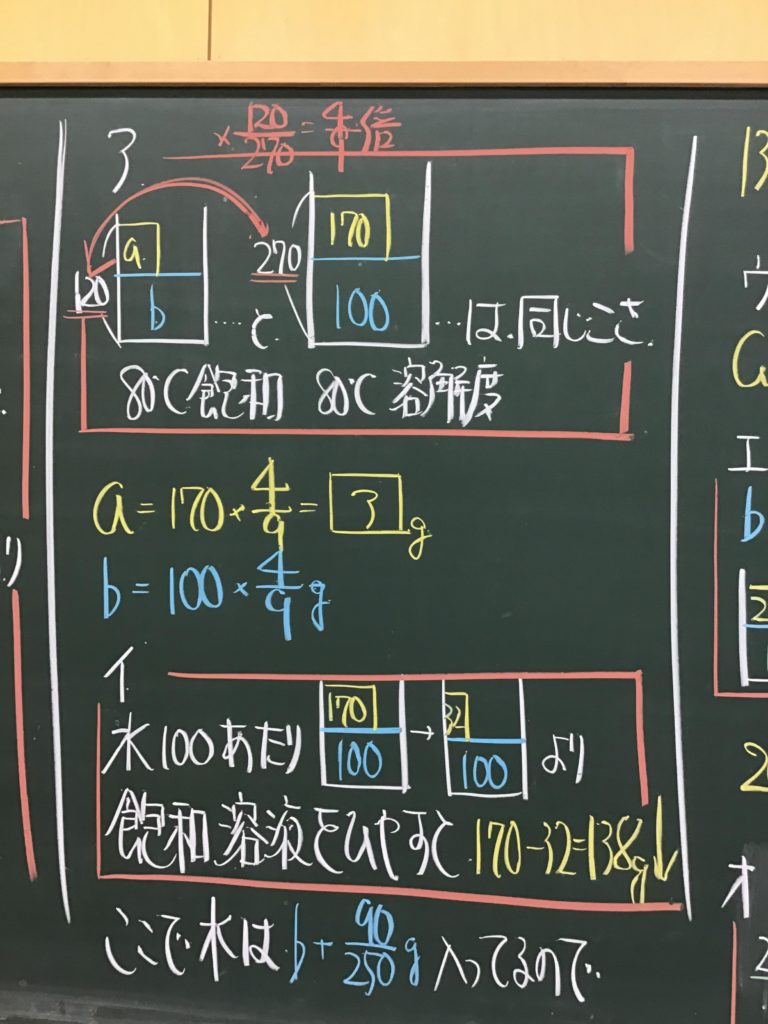 ア
×120/270=4/9倍
120 a b …と 270 170 100 …は、同じこさ。
80℃飽和 80℃ 溶解度
a=170×4/9=ア g
b=100×4/9 g
イ
水100あたり 170 100 → 32 100 より
飽和溶液をひやすと 170-32=138g↓
ここで水は b+90/250 g 入ってるので、
り
13
ウ
a
エ
b
2
2
オ